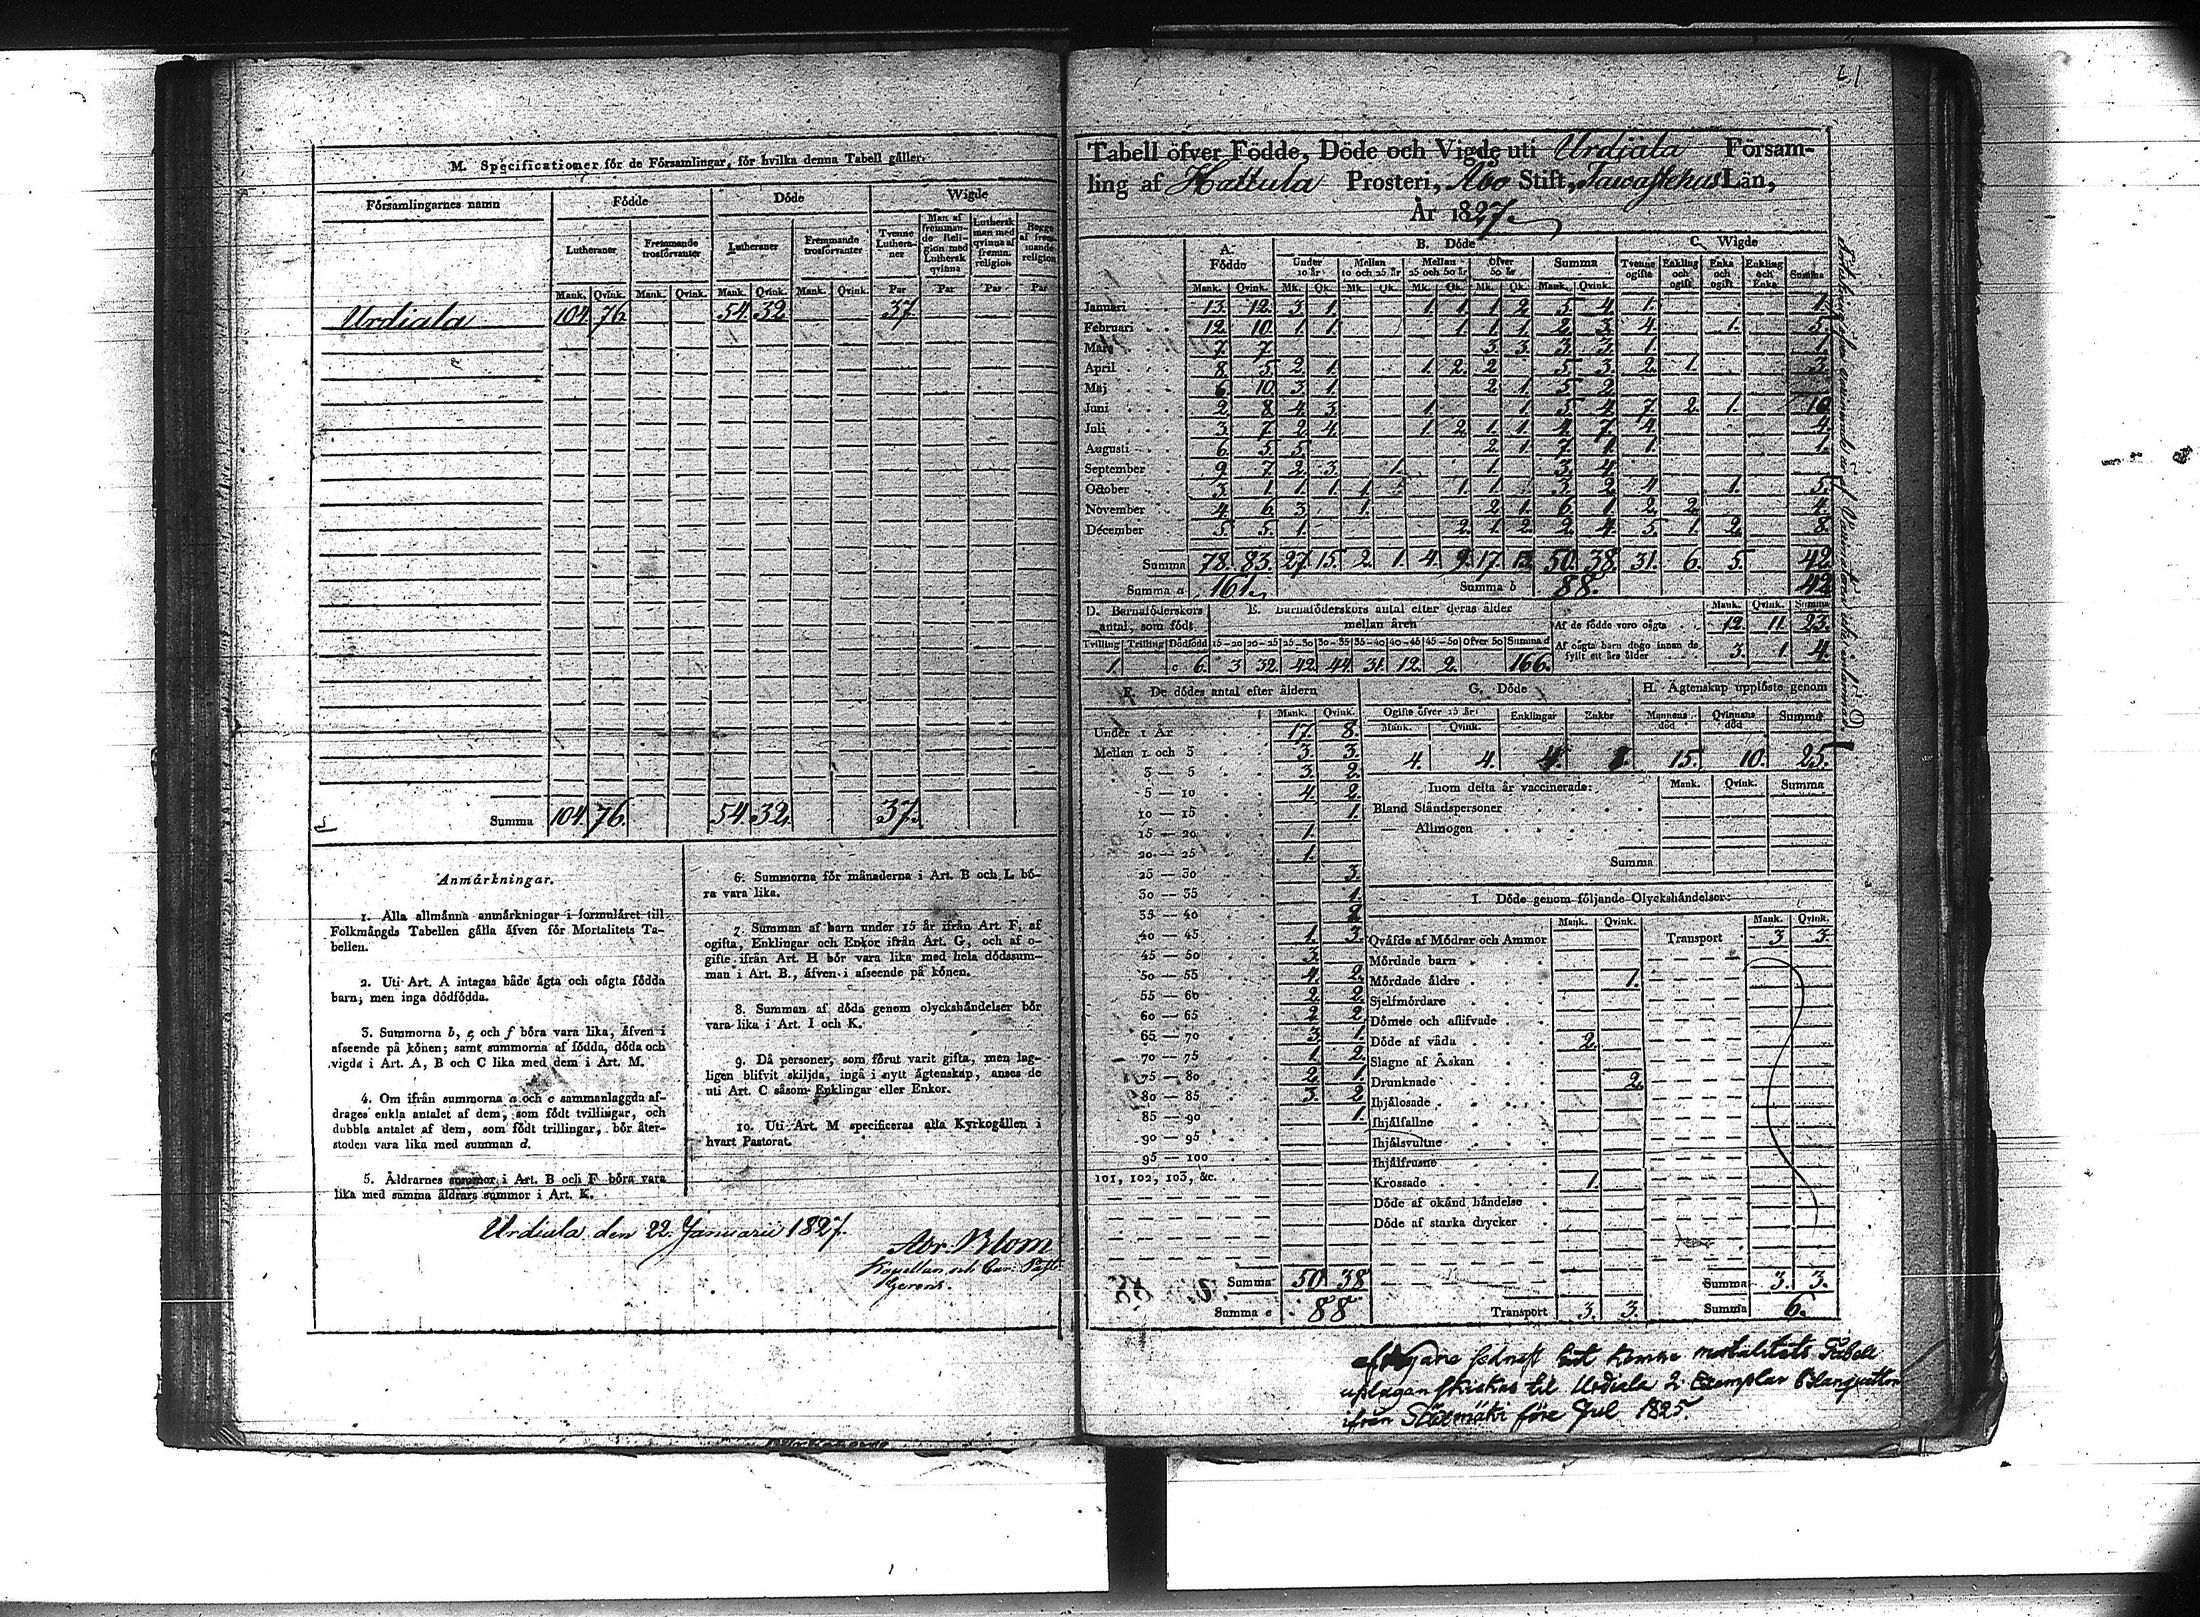 M. Specificationer för de Församlingar, för hvilka denna Tabell gäller.
Församlingarnes namn Födde Döde Wigde
Lutheraner Fremmande trosförvanter Lutheraner Fremmande trosförvanter Tvenne Lutheraner Man af fremmande Religion med Luthersk qvinna Luthersk man med qvinna af fremm: religion Begge af fremmande religion
Mank. Qvink. Mank. Qvink. Mank. Qvink. Mank. Qvink. Par Par Par Par
Urdiala 104. 76. 54. 32. 37.
Summa 104. 76. 54. 32. 37.
Anmärkningar.
1. Alla allmänna anmärkningar i formuläret till
Folkmängds Tabellen gälla äfven för Mortalitets Ta-
bellen.
2. Uti Art. A intagas både ägta och oägta födda
barn; men inga dödfödda.
3. Summorna b, e, och f böra vara lika, äfven i
afseende på könen; samt summorna af födda, döda och
vigda i Art. A, B och C lika med dem i Art. M.
4. Om ifrån summorna a och c sammanlaggda af-
drages enkla antalet af dem, som födt tvillingar, och
dubbla antalet af dem, som födt trillingar, bör åter-
stoden vara lika med summan d.
5. Äldrarnes summor i Art. B och F böra vara
lika med samma äldrars summor i Art. K.
6. Summorna för månaderna i Art. B och L bö-
ra vara lika.
7. Summan af barn under 15 år ifrån Art. F, af
ogifta, Enklingar och Enkor ifrån Art. G, och af o-
gifte ifrån Art. H bör vara lika med hela dödssum-
man i Art. B., äfven i afseende på könen.
8. Summan af döda genom olyckshändelser bör
vara lika i Art. I och K.
9. Då personer, som förut varit gifta, men lag-
ligen blifvit skiljda, ingå i nytt ägtenskap, anses de
uti Art. C såsom Enklingar eller Enkor.
10. Uti Art. M specificeras alla Kyrkogällen i
hvart Pastorat.
Urdiala den 22. Januarii 1827.
Abr. Blom
Kapellan och
Gerens.
21
Tabell öfver Födde, Döde och Vigde uti Urdiala Försam-
ling af Hattula Prosteri, Åbo Stift, Tawastehus Län,
År 1827.
A. Födde B. Döde C. Wigde
Under 10 år Mellan 10 och 25 år Mellan 25 och 50 år Öfver 50 år Summa Tvenne ogifte Enkling och ogift Enka och ogift Enkling och Enka Summa
Mank. Qvink. Mk. Qk. Mk. Qk. Mk. Qk. Mk. Qk. Mank. Qvink.
Januari 13. 12. 3. 1. 1. 1. 1. 2. 5. 4. 1. 1.
Februari 12. 10. 1. 1. 1. 1. 1. 2. 3. 4. 1. 5.
Mars 7. 7. 3. 3. 3. 3. 1. 1.
April 8. 5. 2. 1. 1. 2. 2. 5. 3. 2. 1. 3.
Maj 6. 10. 3. 1. 2. 1. 5. 2.
Juni 2. 8. 4. 3. 1. 1. 5. 4. 7. 2. 1. 10.
Juli 3. 7. 2. 4. 1. 2. 1. 1. 4. 7. 4. 4.
Augusti 6. 5. 5. 2. 1. 7. 1. 1. 1.
September 9. 7. 2. 3. 1. 1. 3. 4.
October 3. 1. 1. 1. 1. 1. 1. 3. 2. 4. 1. 5.
November 4. 6. 3. 1. 2. 1. 6. 1. 2. 2. 4.
December 5. 5. 1. 2. 1. 2. 2. 4. 5. 1. 2. 8.
Summa 78. 83. 27. 15. 2. 1. 4. 9. 17. 13. 50. 38. 31. 6. 5. 42.
Summa a 161. Summa b 88. 42
D. Barnaföderskors antal, som födt
Tvilling Trilling Dödfödd
1. c 6.
E. Barnaföderskors antal efter deras ålder mellan åren
15-20 20-25 25-30 30-35 35-40 40-45 45-50 öfver 50 Summa d
3. 32. 42. 44. 31. 12. 2. 166.
Mank. Qvink. Summa
Af de födde voro oägta 12. 11. 23.
Af oägta barn dogo innan de fyllt ett års ålder 3. 1. 4.
F. De dödes antal efter åldern
Mank. Qvink.
Under 1 År 17. 8.
Mellan 1 och 3 3. 3.
3 — 5 3. 2.
5 — 10 4. 2.
10 — 15 1.
15 — 20 1.
20 — 25 1.
25 — 30 3.
30 — 35 1.
35 — 40 2.
40 — 45 1. 3.
45 — 50 3.
50 — 55 4. 2.
55 — 60 2. 2.
60 — 65 2. 2.
65 — 70 3. 1.
70 — 75 1. 2.
75 — 80 2. 1.
80 — 85 3. 2.
85 — 90 1.
90 — 95
95 — 100
101, 102, 103, &c.
Summa 50. 38
Summa e 88
G. Döde
Ogifte öfver 15 år: Enklingar Enkor
Mank. Qvink.
4. 4. 4.
H. Ägtenskap upplöste genom
Mannens död Qvinnans död Summa
15. 10. 25.
Inom detta år vaccinerade: Mank. Qvink. Summa
Bland Ståndspersoner
— Allmogen
Summa
I. Döde genom följande Olyckshändelser:
Mank. Qvink. Mank. Qvink.
Qväfde af Mödrar och Ammor Transport 3 3.
Mördade barn
Mördade äldre 1.
Sjelfmördare
Dömde och aflifvade
Döde af våda 2.
Slagne af Åskan
Drunknade 2.
Ihjälosade
Ihjälfallne
Ihjälsvultne
Ihjälfrusne
Krossade 1.
Döde af okänd händelse
Döde af starka drycker
Summa 3. 3.
Transport 3. 3. Summa 6.
mortalitets Tabell
uplagan skickas til Urdiala 2. Exemplar Blanquetter
ifrån före Jul 1825.